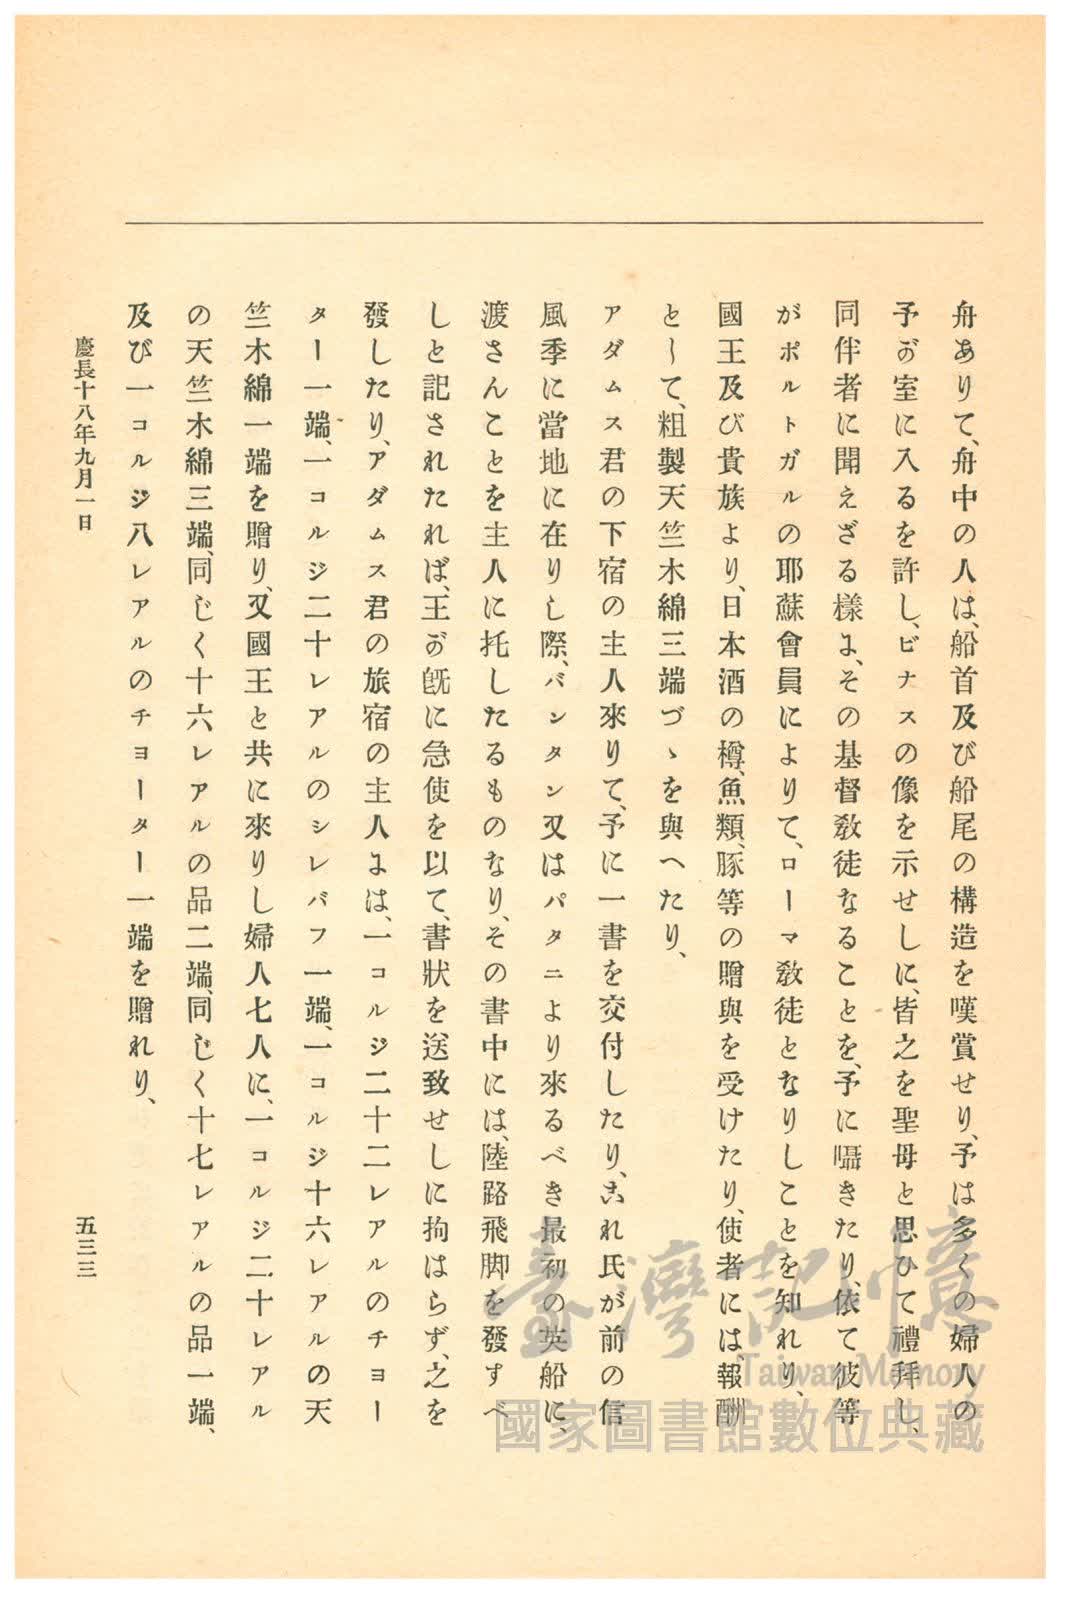 舟ありて、舟中の人は、船首及び船尾の構造を嘆賞せり、予は多くの婦人の
予が室に入るを許し、ビナスの像を示せしに、皆之を聖母と思ひて禮拜し、
同伴者に聞えざる樣に、その基督教徒なることを、予に囁きたり、依て彼等
がポルトガルの耶蘇會員によりて、ローマ教徒となりしことを知れり、
國王及び貴族より、日本酒の樽、魚類、豚等の贈與を受けたり、使者には報酬
として、粗製天竺木綿三端づゝを與へたり、
アダムス君の下宿の主人來りて、予に一書を交付したり、これ氏が前の信
風季に當地に在りし際、バンタン又はパタニより來るべき最初の英船に、
渡さんことを主人に托したるものなり、その書中には、陸路飛脚を發すべ
しと記されたれば、王が既に急使を以て、書狀を送致せしに拘はらず、之を
發したり、アダムス君の旅宿の主人には、一コルジ二十二レアルのチヨー
ター一端、一コルジ二十レアルのシレバフ一端、一コルジ十六レアルの天
竺木綿一端を贈り、又國王と共に來りし婦人七人に、一コルジ二十レアル
の天竺木綿三端、同じく十六レアルの品二端、同じく十七レアルの品一端、
及び一コルジ八レアルのチヨーター一端を贈れり、
慶長十八年九月一日
五三三
臺灣記憶
Taiwan Memory
國家圖書館數位典藏